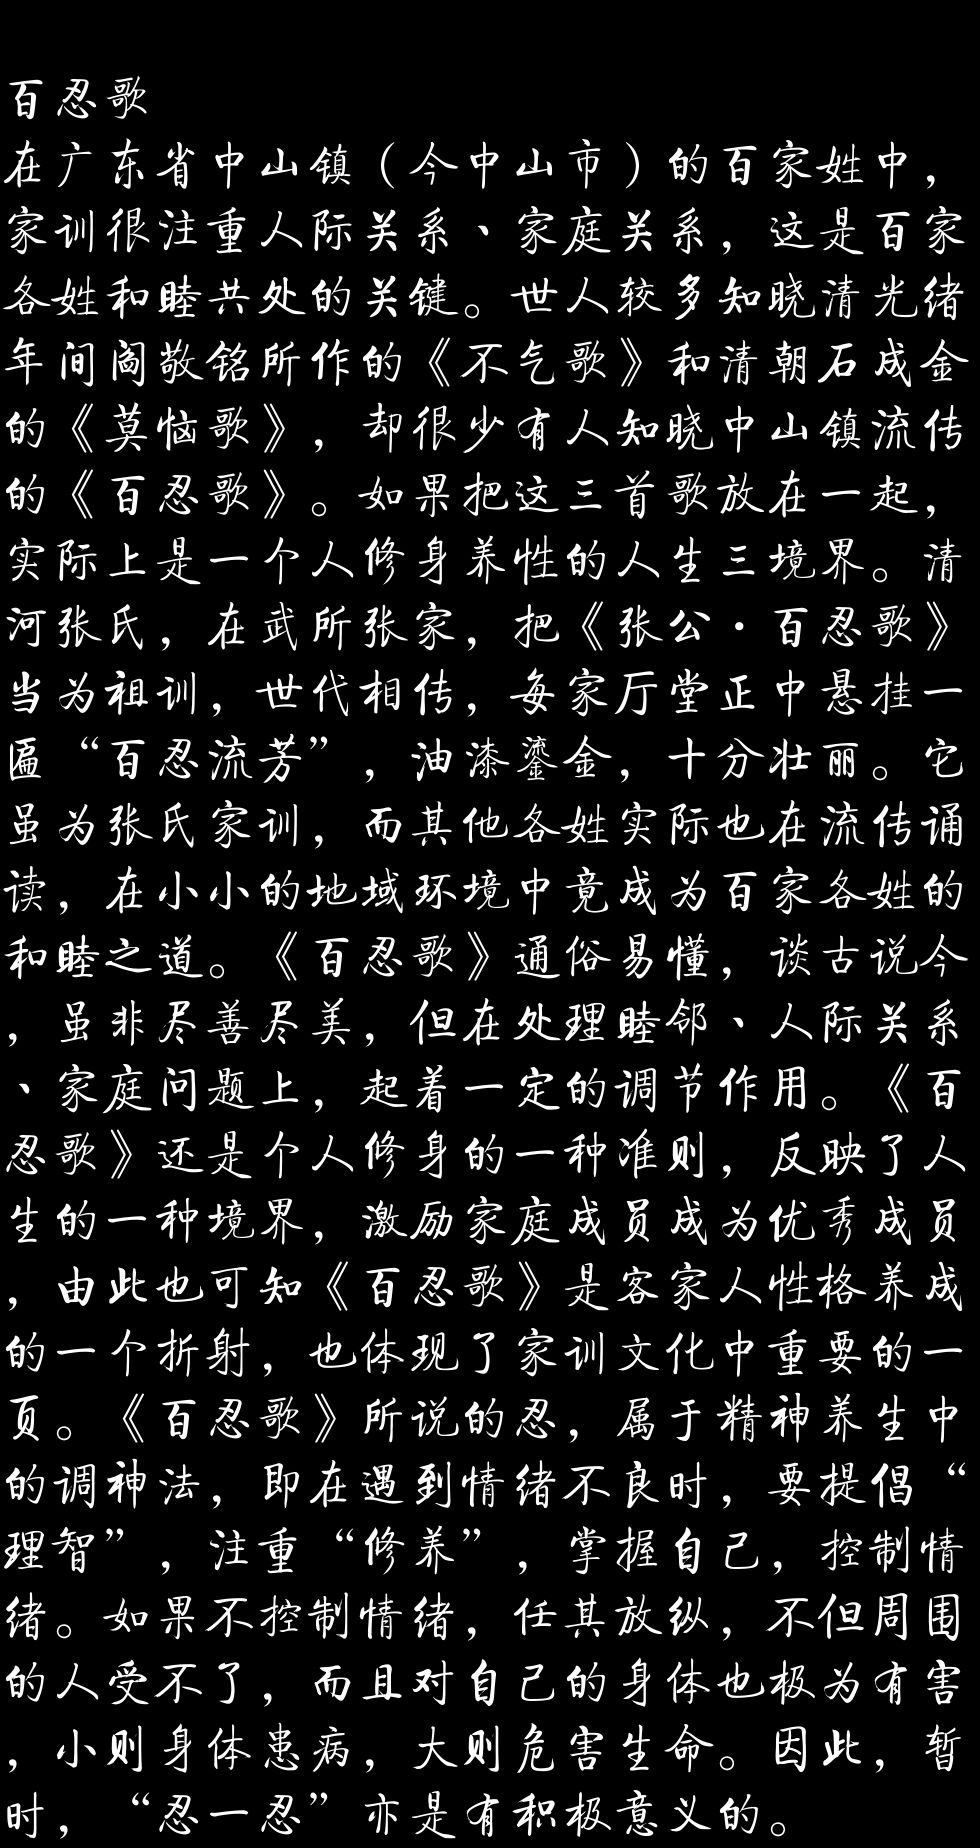 百忍歌
在广东省中山镇（今中山市）的百家姓中，
家训很注重人际关系、家庭关系，这是百家
各姓和睦共处的关键。世人较多知晓清光绪
年间阎敬铭所作的《不气歌》和清朝石成金
的《莫恼歌》，却很少有人知晓中山镇流传
的《百忍歌》。如果把这三首歌放在一起，
实际上是一个人修身养性的人生三境界。清
河张氏，在武所张家，把《张公·百忍歌》
当为祖训，世代相传，每家厅堂正中悬挂一
匾“百忍流芳”，油漆鎏金，十分壮丽。它
虽为张氏家训，而其他各姓实际也在流传诵
读，在小小的地域环境中竟成为百家各姓的
和睦之道。《百忍歌》通俗易懂，谈古说今
，虽非尽善尽美，但在处理睦邻、人际关系
、家庭问题上，起着一定的调节作用。《百
忍歌》还是个人修身的一种准则，反映了人
生的一种境界，激励家庭成员成为优秀成员
，由此也可知《百忍歌》是客家人性格养成
的一个折射，也体现了家训文化中重要的一
页。《百忍歌》所说的忍，属于精神养生中
的调神法，即在遇到情绪不良时，要提倡“
理智”，注重“修养”，掌握自己，控制情
绪。如果不控制情绪，任其放纵，不但周围
的人受不了，而且对自己的身体也极为有害
，小则身体患病，大则危害生命。因此，暂
时，“忍一忍”亦是有积极意义的。